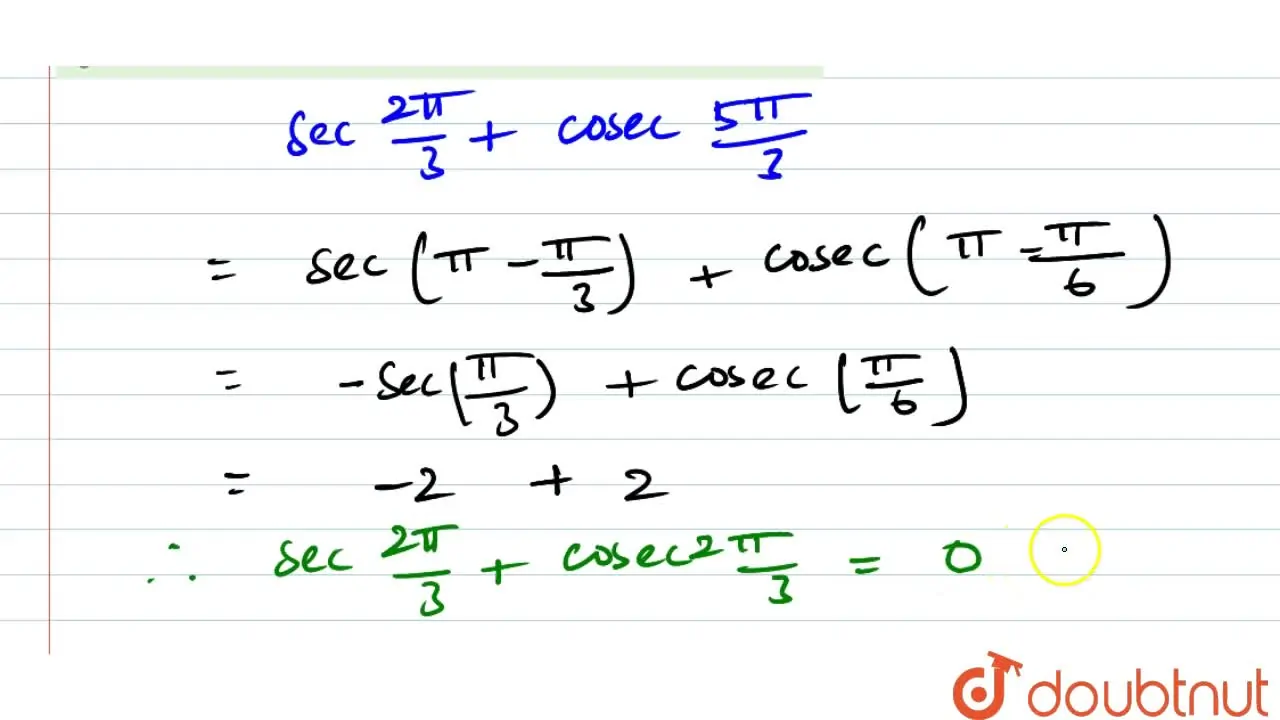 sec 2π/3 + cosec 5π/3
= sec (π - π/3) + cosec (π - π/6)
= -sec (π/3) + cosec (π/6)
= -2 + 2
∴ sec 2π/3 + cosec 2π/3 = 0
doubtnut